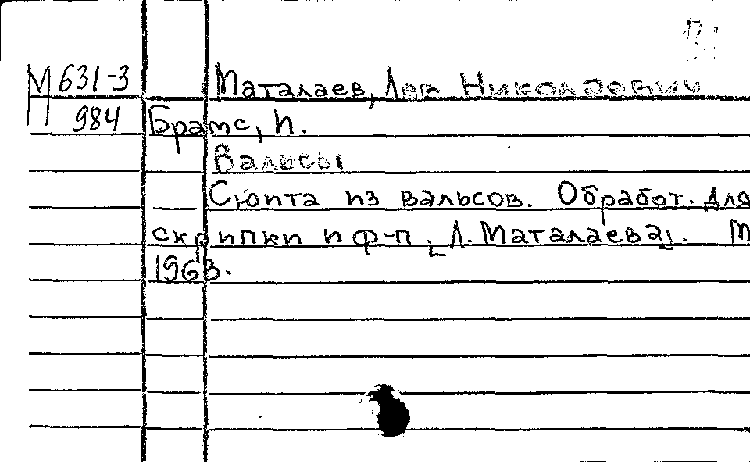 М 631-3 Маталаев, Лев Николаевич
П 984 Брамс, И.
Вальсы
Сюита из вальсов. Обработ. для
скрипки и ф-п. [Л. Маталаева]. М
1963.